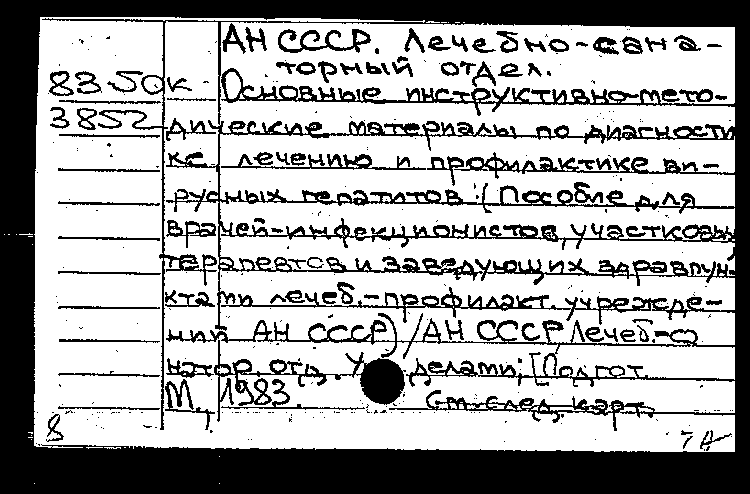 АН СССР. Лечебно-сана-
торный отдел.
83-50к Основные инструктивно-мето-
3852 дические материалы по диагности
ке, лечению и профилактике ви-
русных гепатитов: (Пособие для
врачей-инфекционистов, участковых
терапевтов и заведующих здравпун-
ктами лечеб.-профилакт. учрежде-
ний АН СССР) / АН СССР Лечеб.-са
натор. отд. делами; [Подгот.
М., 1983. См. след. карт.
8